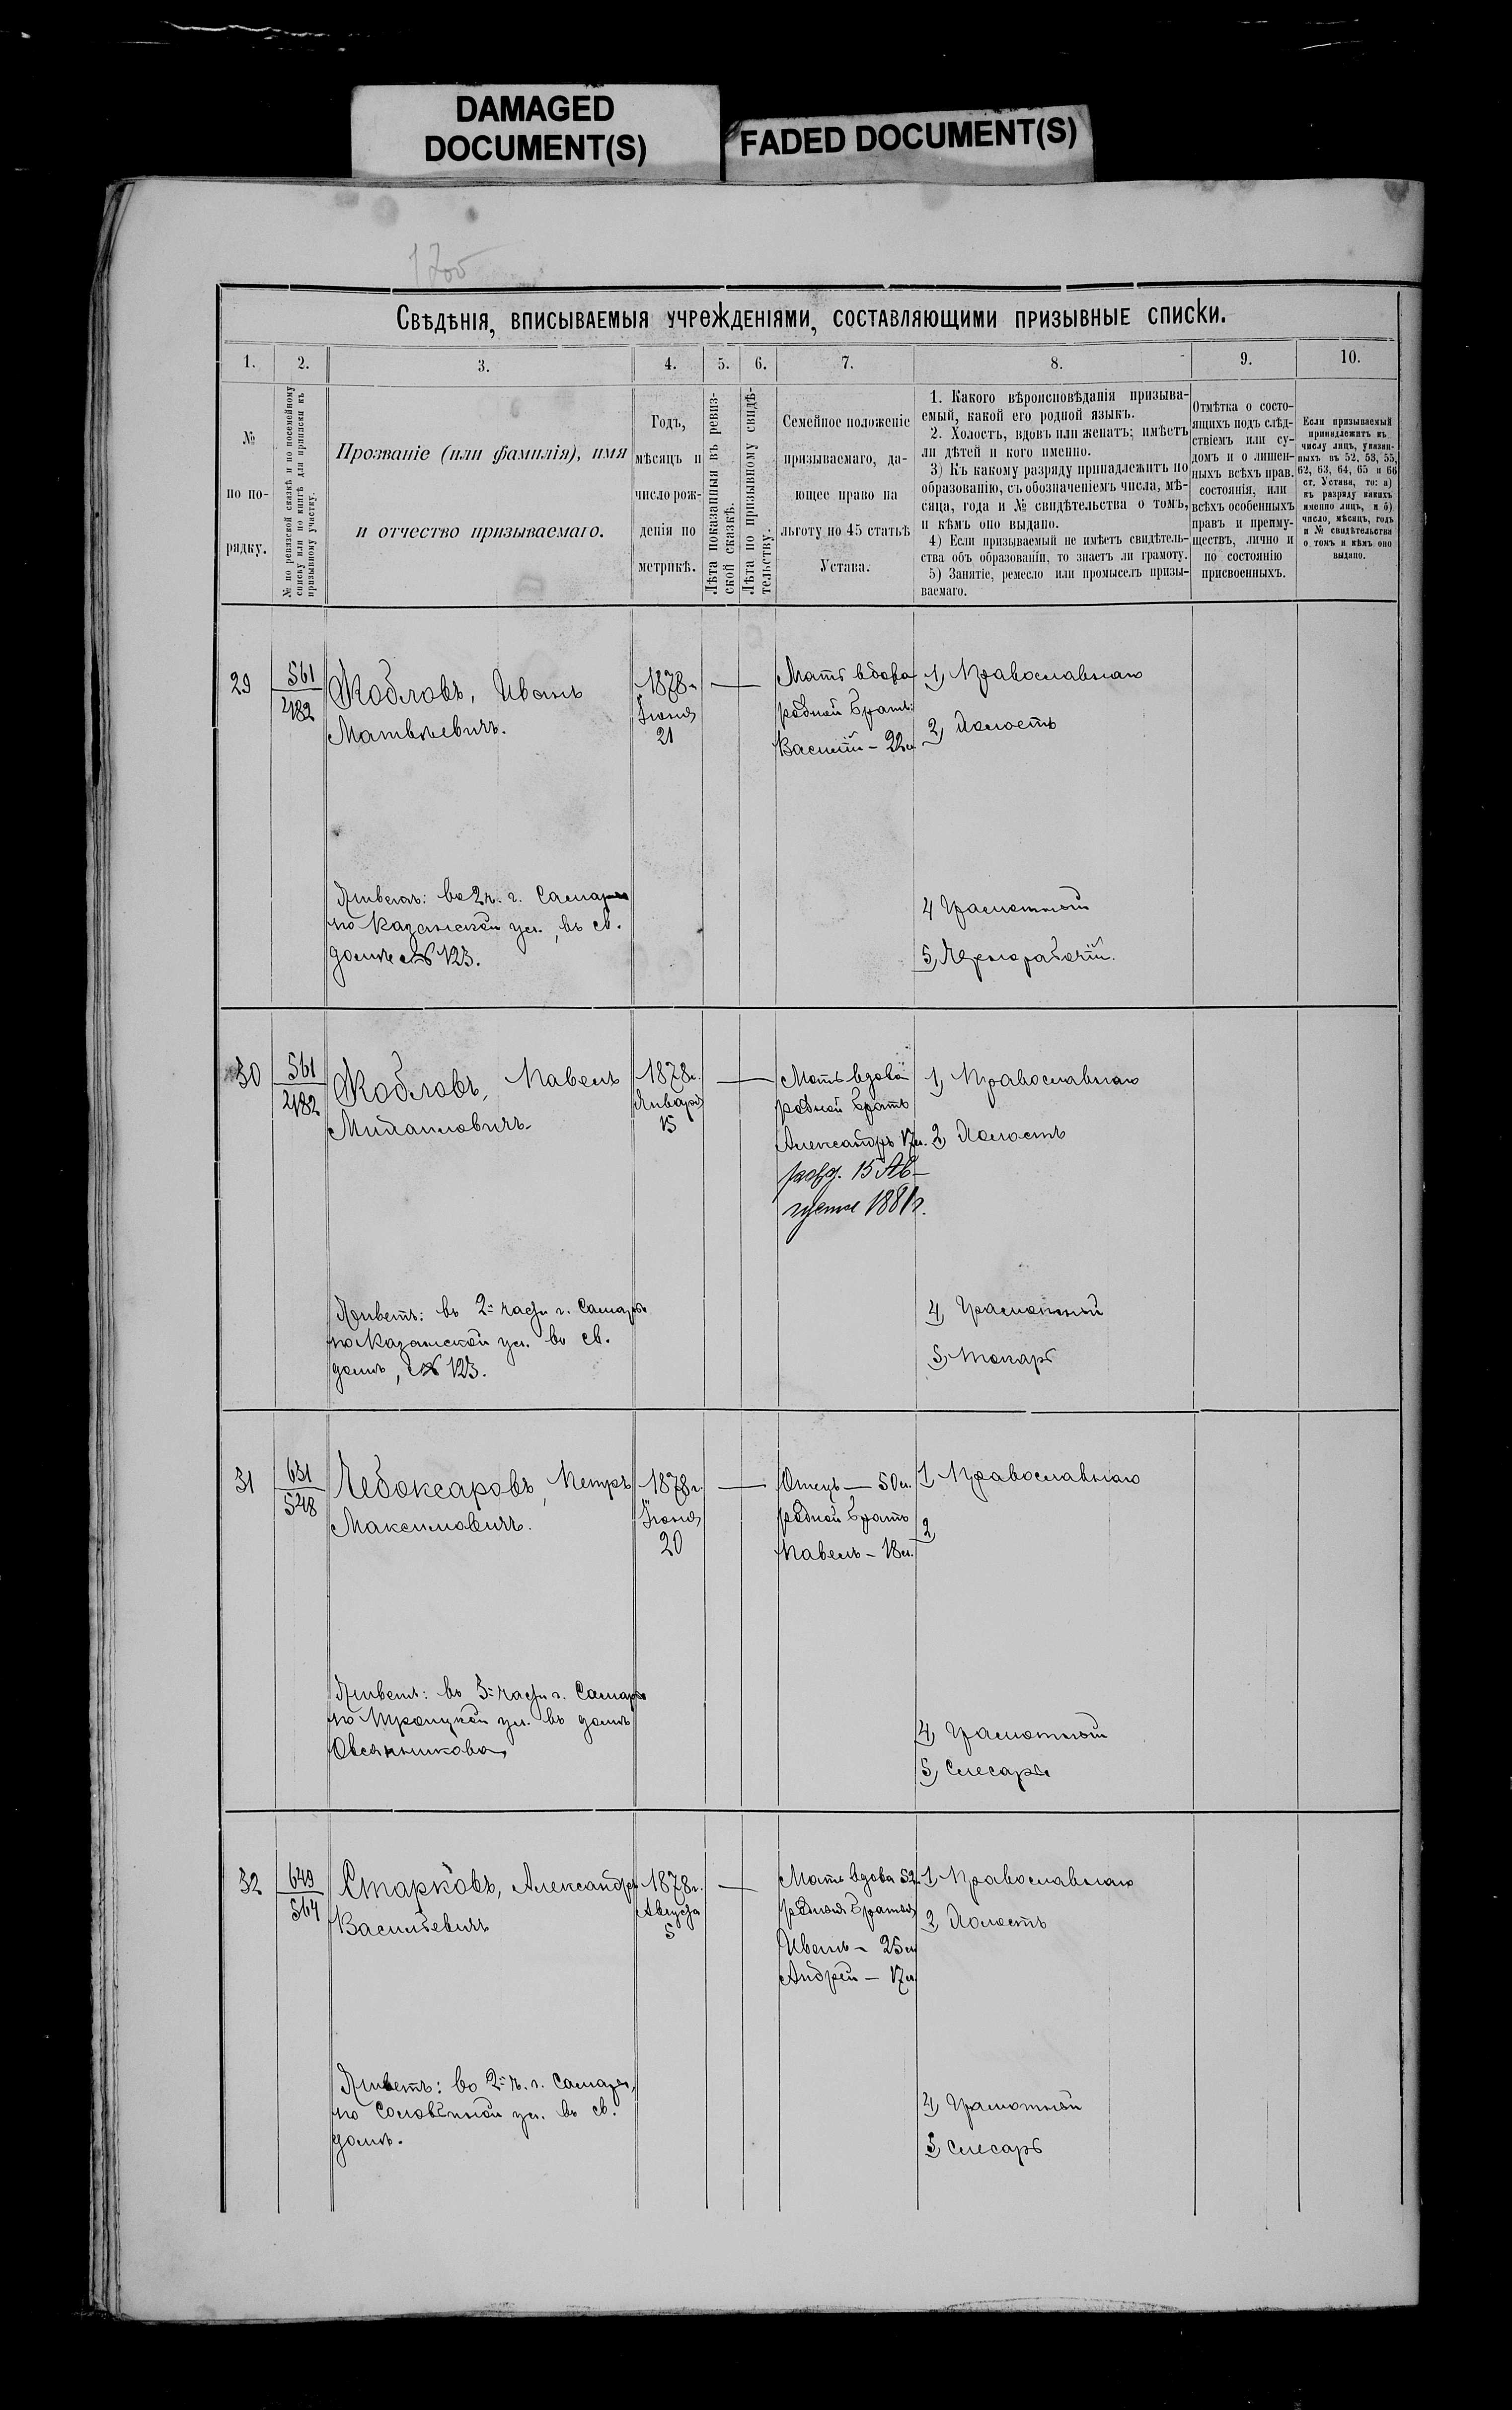 DAMAGED
DOCUMENT(S)
FADED DOCUMENT(S)
Свѣдѣнія, вписываемыя учрежденіями, составляющими призывные списки.
1.
2.
3.
4.
5.
6.
7.
8.
9.
10.
№
по по-
рядку.
№ по ревизской сказкѣ и по посемейному
списку или по книгѣ для приписки къ
призывному участку.
Прозваніе (или фамилія), имя
и отчество призываемаго.
Годъ,
мѣсяцъ и
число рож-
денія по
метрикѣ.
Лѣта показанныя въ ревиз-
ской сказкѣ.
Лѣта по призывному свидѣ-
тельству.
Семейное положеніе
призываемаго, да-
ющее право на
льготу по 45 статьѣ
Устава.
1. Какого вѣроисповѣданія призыва-
емый, какой его родной языкъ.
2. Холостъ, вдовъ или женатъ; имѣетъ
ли дѣтей и кого именно.
3) Къ какому разряду принадлежитъ по
образованію, съ обозначеніемъ числа, мѣ-
сяца, года и № свидѣтельства о томъ,
и кѣмъ оно выдано.
4) Если призываемый не имѣетъ свидѣтель-
ства объ образованіи, то знаетъ ли грамоту.
5) Занятіе, ремесло или промыселъ призы-
ваемаго.
Отмѣтка о состо-
ящихъ подъ слѣд-
ствіемъ или су-
домъ и о лишен-
ныхъ всѣхъ прав.
состоянія, или
всѣхъ особенныхъ
правъ и преиму-
ществъ, лично и
по состоянію
присвоенныхъ.
Если призываемый
принадлежитъ къ
числу лицъ, указан-
ныхъ въ 52, 53, 55,
62, 63, 64, 65 и 66
ст. Устава, то: а)
къ разряду какихъ
именно лицъ, и б)
число, мѣсяцъ, годъ
и № свидѣтельства
о томъ и кѣмъ оно
выдано.
29
561
482
Жобловъ, Иванъ
Матвѣевичъ.
1878г.
Іюня
21
Мать вдова
родной братъ:
Василій - 22л
1, Православнаго
2, Холостъ
Живетъ: во 2 ч. г. Самары
по Казанской ул., въ св.
домѣ № 123.
4 Грамотный
5, Чернорабочій.
30
561
482
Жобловъ, Павелъ
Михаиловичъ.
1878г.
Января
15
Мать вдова
родной братъ
Александръ 17л.
рожд. 15 Ав-
густа 1881г.
1, Православнаго
2, Холостъ
Живетъ: въ 2й части г. Самары
по Казанской ул. въ св.
домѣ, № 123.
4, Грамотный
5, Токарь
31
631
548
Чебоксаровъ, Петръ
Максимовичъ.
1878г.
Іюня
20
Отецъ — 50л.
родной братъ
Павелъ - 18л.
1, Православнаго
2,
Живетъ: въ 3й части г. Самары
по Троицкой ул. въ домѣ
Овсянникова
4, Грамотный
5, Слесарь
32
649
564
Старковъ, Александръ
Васильевичъ
1878г.
Августа
5
Мать вдова 52
родные братья
Иванъ - 25л
Андрей - 17л
1, Православнаго
2, Холостъ
Живетъ: во 2й ч. г. Самары,
по Соловьиной ул. въ св.
домѣ.
4, Грамотный
5, Слесарь